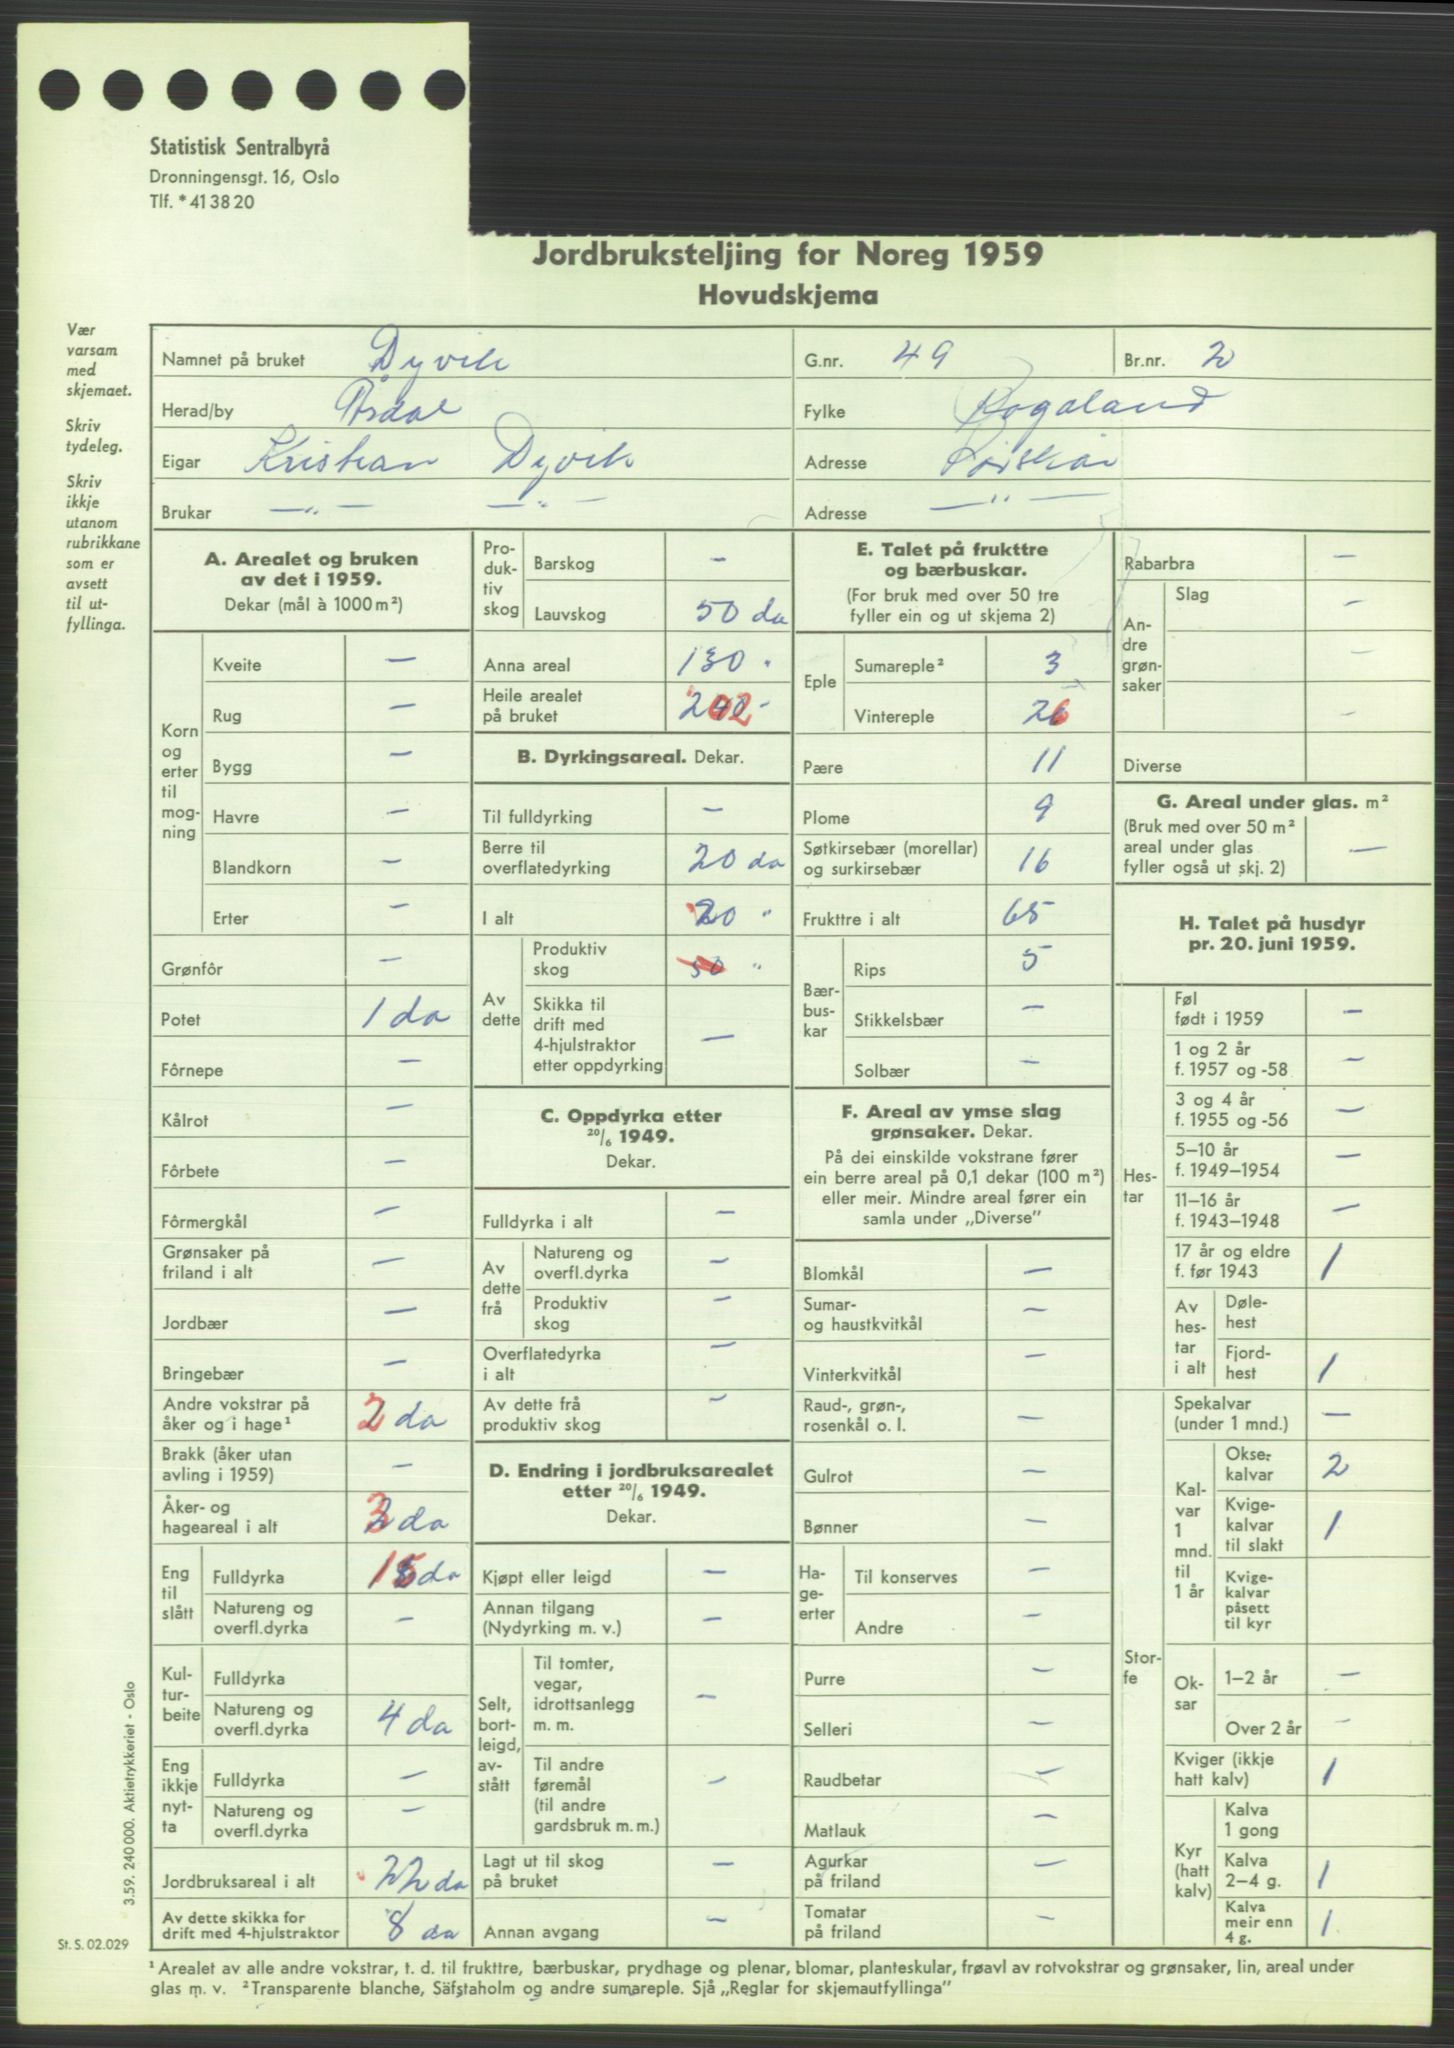 Statistisk Sentralbyrå
Dronningensgt. 16, Oslo
Tlf. * 41 38 20
Jordbruksteljing for Noreg 1959
Hovudskjema
Vær
varsam
med
skjemaet.
Skriv
tydeleg.
Skriv
ikkje
utanom
rubrikkane
som er
avsett
til ut-
fyllinga.
Namnet på bruket Dyvik G.nr. 49 Br.nr. 2
Herad/by Årdal Fylke Rogaland
Eigar Kristian Dyvik Adresse
Brukar — " — — " — Adresse — " —
A. Arealet og bruken
av det i 1959.
Dekar (mål à 1000 m²)
Korn og erter til mogning
Kveite —
Rug —
Bygg —
Havre —
Blandkorn —
Erter —
Grønfôr —
Potet 1 da
Fôrnepe —
Kålrot —
Fôrbete —
Fôrmergkål —
Grønsaker på
friland i alt —
Jordbær —
Bringebær —
Andre vokstrar på
åker og i hage¹ 2 da
Brakk (åker utan
avling i 1959) —
Åker- og
hageareal i alt 3 da
Eng til slått
Fulldyrka 15 da
Natureng og
overfl.dyrka —
Kul-
tur-
beite
Fulldyrka
Natureng og
overfl.dyrka 4 da
Eng
ikkje
nyt-
ta
Fulldyrka —
Natureng og
overfl.dyrka —
Jordbruksareal i alt 22 da
Av dette skikka for
drift med 4-hjulstraktor 8 da
Pro-
duk-
tiv
skog
Barskog —
Lauvskog 50 da
Anna areal 130 "
Heile arealet
på bruket 202 -
B. Dyrkingsareal. Dekar.
Til fulldyrking —
Berre til
overflatedyrking 20 da
I alt 20 "
Av
dette
Produktiv
skog 50 "
Skikka til
drift med
4-hjulstraktor
etter oppdyrking —
C. Oppdyrka etter
20/6 1949.
Dekar.
Fulldyrka i alt —
Av
dette
frå
Natureng og
overfl.dyrka —
Produktiv
skog —
Overflatedyrka
i alt —
Av dette frå
produktiv skog —
D. Endring i jordbruksarealet
etter 20/6 1949.
Dekar.
Kjøpt eller leigd —
Annan tilgang
(Nydyrking m. v.) —
Selt,
bort-
leigd,
av-
stått
Til tomter,
vegar,
idrottsanlegg
m. m. —
Til andre
føremål
(til andre
gardsbruk m.m.) —
Lagt ut til skog
på bruket —
Annan avgang —
E. Talet på frukttre
og bærbuskar.
(For bruk med over 50 tre
fyller ein og ut skjema 2)
Eple
Sumareple² 3
Vintereple 26
Pære 11
Plome 9
Søtkirsebær (morellar)
og surkirsebær 16
Frukttre i alt 65
Bær-
bus-
kar
Rips 5
Stikkelsbær —
Solbær —
F. Areal av ymse slag
grønsaker. Dekar.
På dei einskilde vokstrane fører
ein berre areal på 0,1 dekar (100 m²)
eller meir. Mindre areal fører ein
samla under „Diverse”
Blomkål —
Sumar-
og haustkvitkål —
Vinterkvitkål —
Raud-, grøn-,
rosenkål o. l. —
Gulrot —
Bønner —
Ha-
ge-
erter
Til konserves —
Andre —
Purre —
Selleri —
Raudbetar —
Matlauk —
Agurkar
på friland —
Tomatar
på friland —
Rabarbra —
An-
dre
grøn-
saker
Slag —
—
—
Diverse
G. Areal under glas. m²
(Bruk med over 50 m²
areal under glas
fyller også ut skj. 2) —
H. Talet på husdyr
pr. 20. juni 1959.
Hes-
tar
Føl
født i 1959 —
1 og 2 år
f. 1957 og -58 —
3 og 4 år
f. 1955 og -56 —
5–10 år
f. 1949–1954 —
11–16 år
f. 1943–1948 —
17 år og eldre
f. før 1943 1
Av
hes-
tar
i alt
Døle-
hest
Fjord-
hest 1
Stor-
fe
Spekalvar
(under 1 mnd.) —
Kal-
var
1
mnd.
til
1 år
Okse-
kalvar 2
Kvige-
kalvar
til slakt 1
Kvige-
kalvar
påsett
til kyr
Ok-
sar
1–2 år —
Over 2 år —
Kviger (ikkje
hatt kalv) 1
Kyr
(hatt
kalv)
Kalva
1 gong
Kalva
2–4 g. 1
Kalva
meir enn
4 g. 1
3.59. 240 000. Aktietrykkeriet - Oslo
St. S. 02.029
¹ Arealet av alle andre vokstrar, t. d. til frukttre, bærbuskar, prydhage og plenar, blomar, planteskular, frøavl av rotvokstrar og grønsaker, lin, areal under
glas m. v. ² Transparente blanche, Säfstaholm og andre sumareple. Sjå „Reglar for skjemautfyllinga”